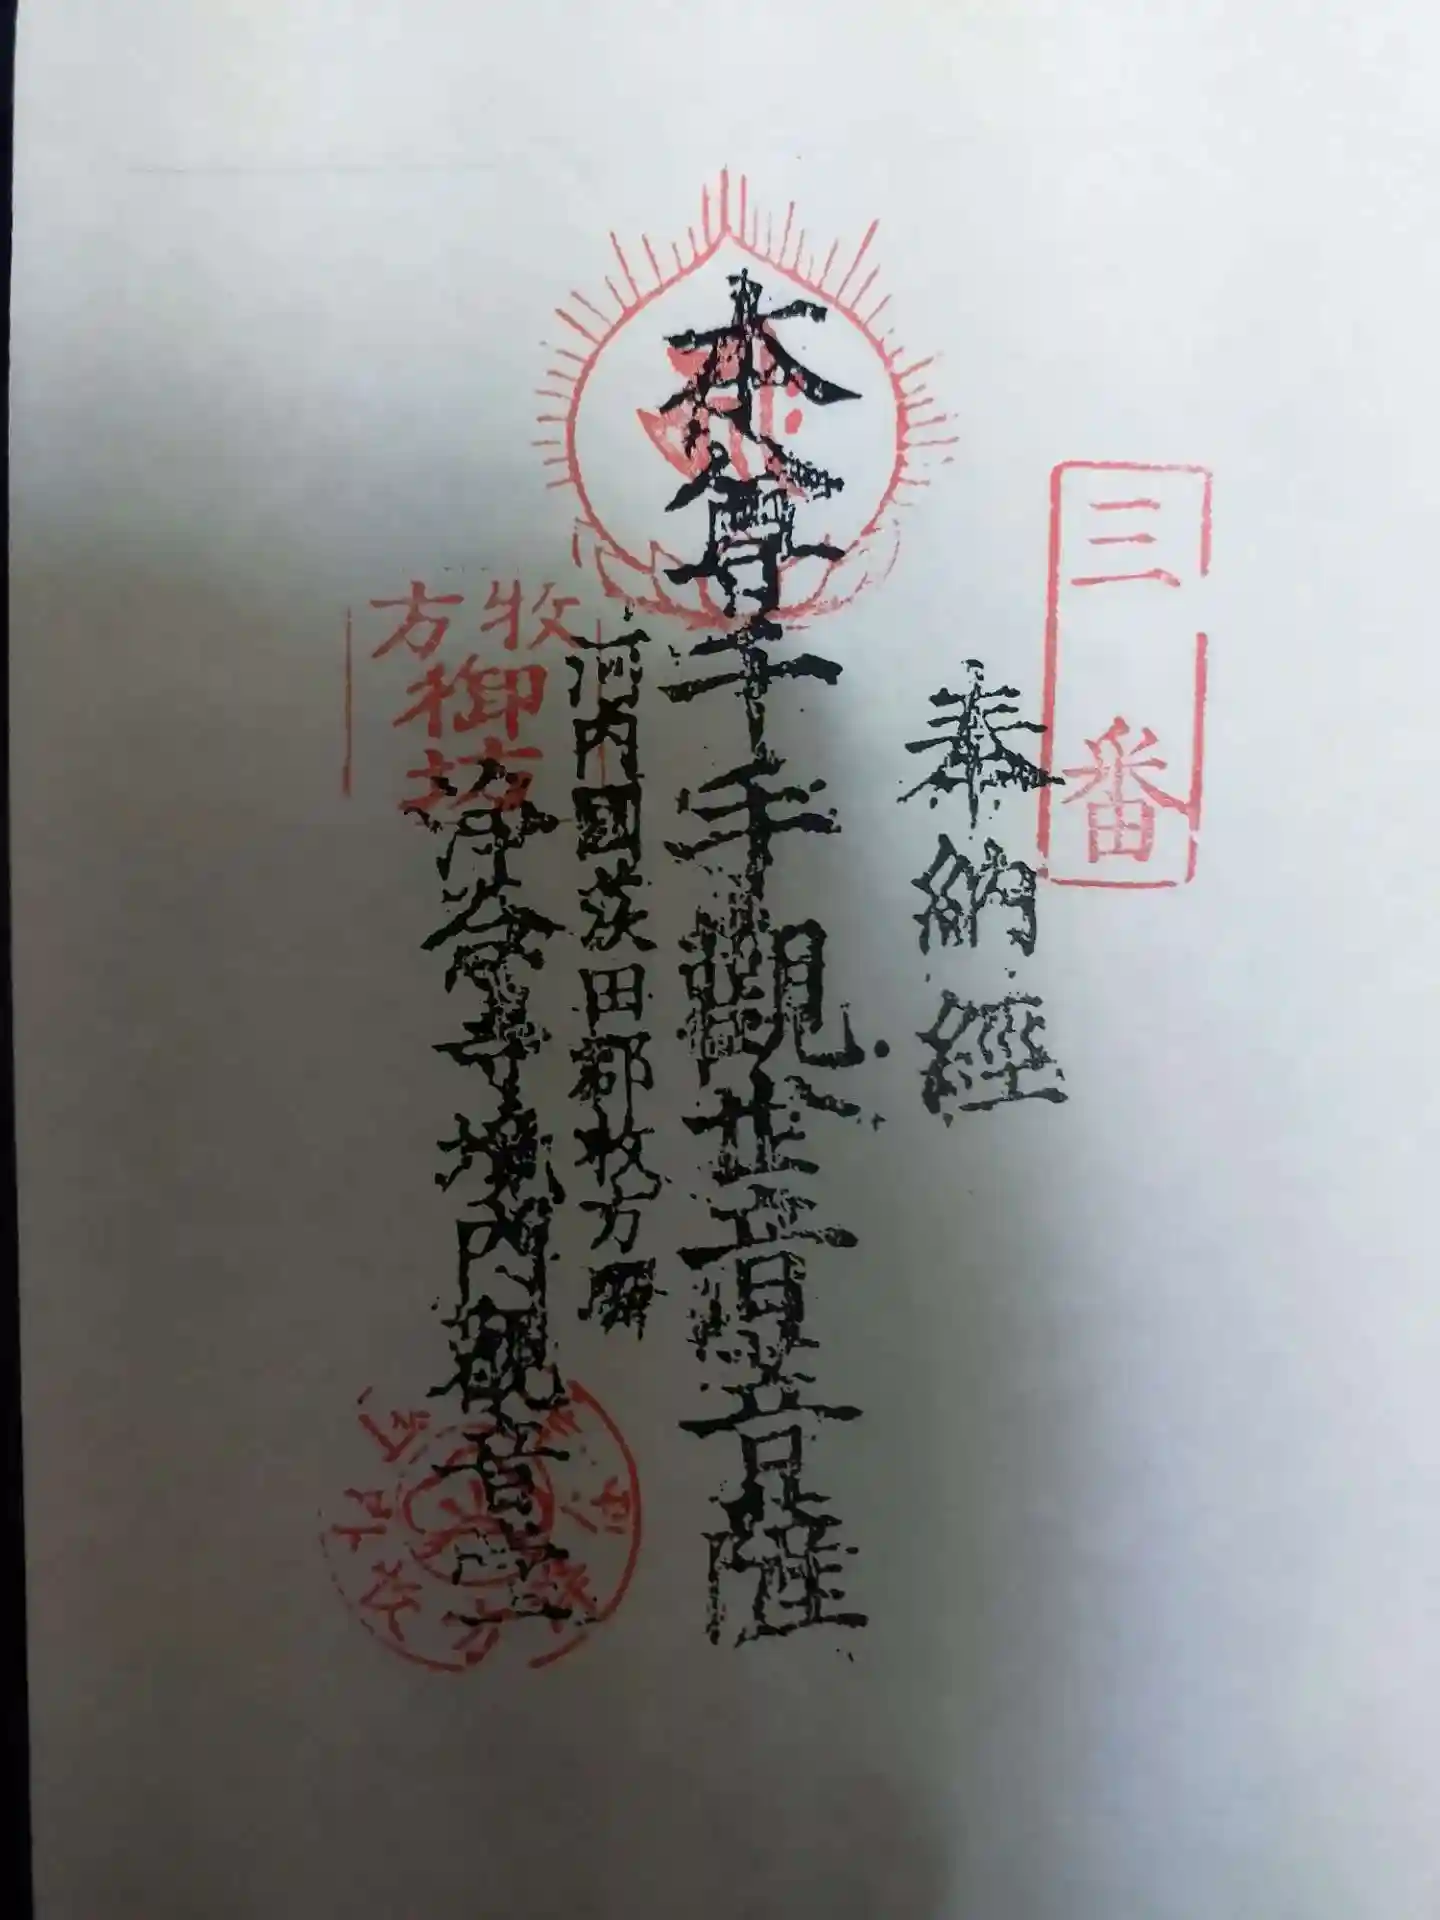 三番
奉納經
本尊千手観世音菩薩
河内國茨田郡牧方
牧方
御坊
浄念寺境内観音堂